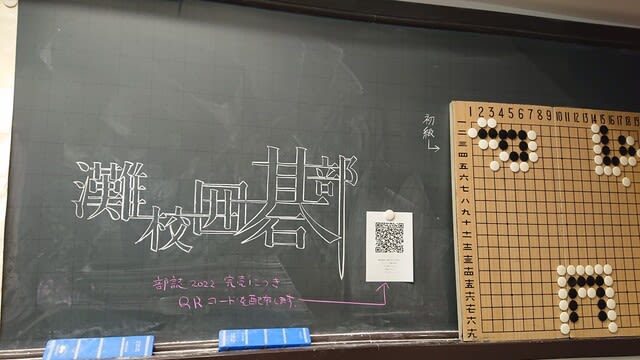 灘校囲碁部
部誌2022 完売につき
QRコードを配布します。
初級
1 2 3 4 5 6 7 8 9 10 11 12 13 14 15 16 17 18 19
一
二
三
四
五
六
七
八
九
十
十一
十二
十三
十四
十五
十六
十七
十八
十九